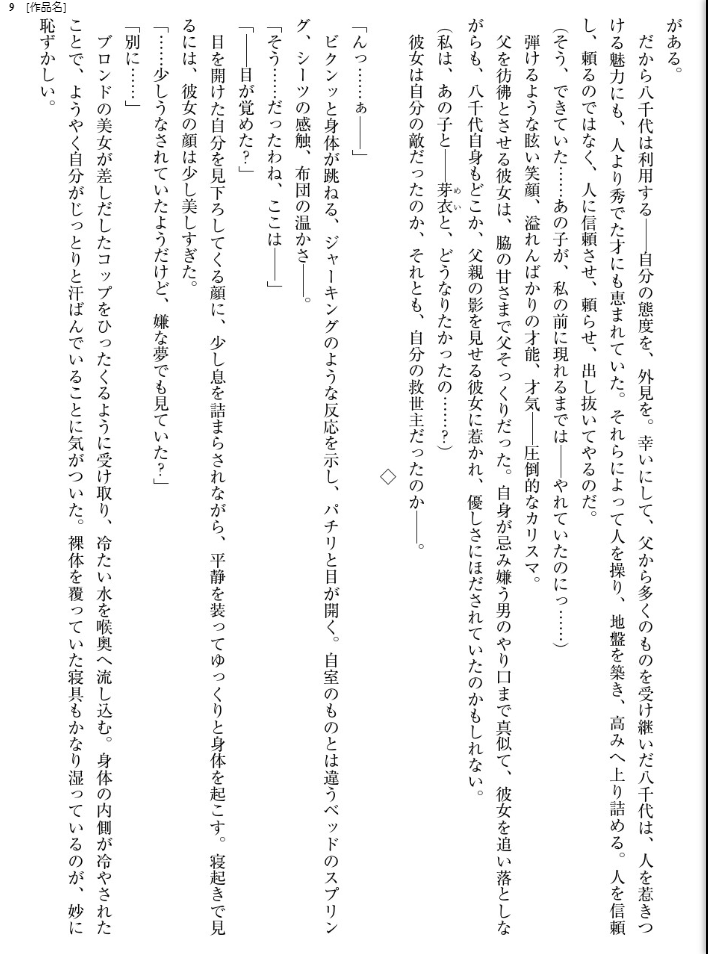 9 [作品名]
がある。
　だから八千代は利用する――自分の態度を、外見を。幸いにして、父から多くのものを受け継いだ八千代は、人を惹きつ
ける魅力にも、人より秀でた才にも恵まれていた。それらによって人を操り、地盤を築き、高みへ上り詰める。人を信頼
し、頼るのではなく、人に信頼させ、頼らせ、出し抜いてやるのだ。
（そう、できていた……あの子が、私の前に現れるまでは――やれていたのにっ……）
　弾けるような眩い笑顔、溢れんばかりの才能、才気――圧倒的なカリスマ。
　父を彷彿とさせる彼女は、脇の甘さまで父そっくりだった。自身が忌み嫌う男のやり口まで真似て、彼女を追い落としな
がらも、八千代自身もどこか、父親の影を見せる彼女に惹かれ、優しさにほだされていたのかもしれない。
（私は、あの子と――芽衣めいと、どうなりたかったの……？）
　彼女は自分の敵だったのか、それとも、自分の救世主だったのか――。
◇
「んっ……ぁ――」
　ビクンッと身体が跳ねる、ジャーキングのような反応を示し、パチリと目が開く。自室のものとは違うベッドのスプリン
グ、シーツの感触、布団の温かさ――。
「そう……だったわね、ここは――」
「――目が覚めた？」
　目を開けた自分を見下ろしてくる顔に、少し息を詰まらされながら、平静を装ってゆっくりと身体を起こす。寝起きで見
るには、彼女の顔は少し美しすぎた。
「……少しうなされていたようだけど、嫌な夢でも見ていた？」
「別に……」
　ブロンドの美女が差しだしたコップをひったくるように受け取り、冷たい水を喉奥へ流し込む。身体の内側が冷やされた
ことで、ようやく自分がじっとりと汗ばんでいることに気がついた。裸体を覆っていた寝具もかなり湿っているのが、妙に
恥ずかしい。